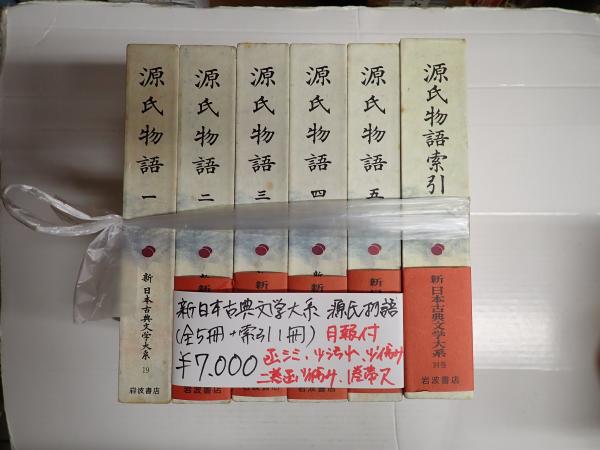 源氏物語 一
新日本古典文学大系
19
岩波書店
源氏物語 二
源氏物語 三
源氏物語 四
源氏物語 五
源氏物語索引
新日本古典文学大系
別巻
岩波書店
新日本古典文学大系 源氏物語
(全5冊+索引1冊) 月報付
¥7.000
函シミ、少汚れ、少傷み
二巻函少傷み、1巻帯欠